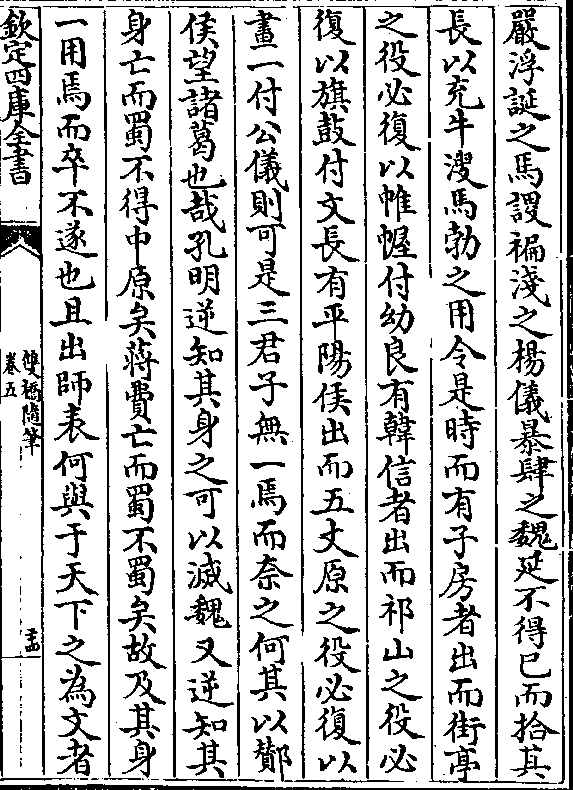 嚴浮誕之馬謖褊淺之楊儀暴肆之魏延不得已而拾其
長以充牛溲馬勃之用令是時而有子房者出而街亭
之役必復以帷幄付幼良有韓信者出而祁山之役必
復以旗鼓付文長有平陽侯出而五丈原之役必復以
畫一付公儀則可是三君子無一焉而奈之何其以酇
侯望諸葛也哉孔明逆知其身之可以滅魏又逆知其
身亡而蜀不得中原矣蔣費亡而蜀不蜀矣故及其身
一用焉而卒不遂也且出師表何與于天下之為文者
欽定四庫全書
雙橋隨筆
卷五